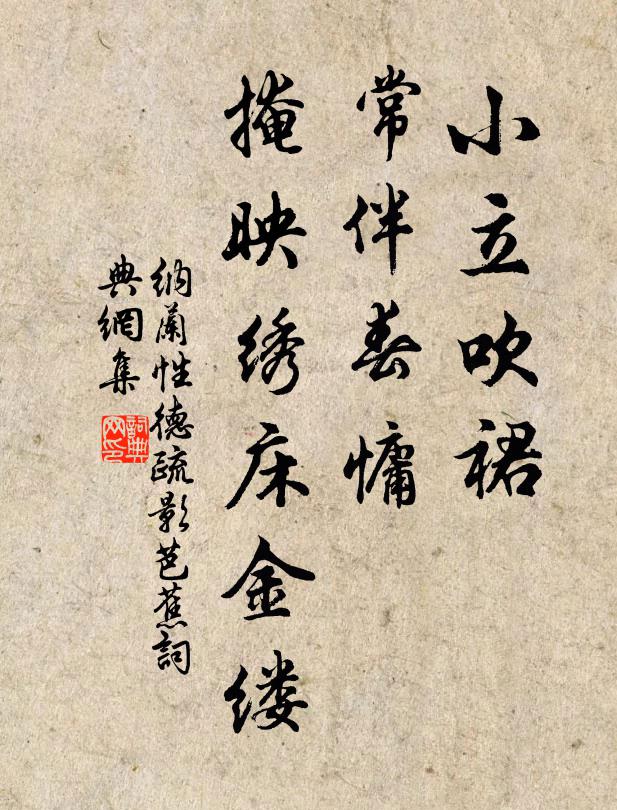 小立吹裙
常伴春慵
掩映绣床金缕
纳蘭性德疏影芭蕉詞
典網集
詞典
网印